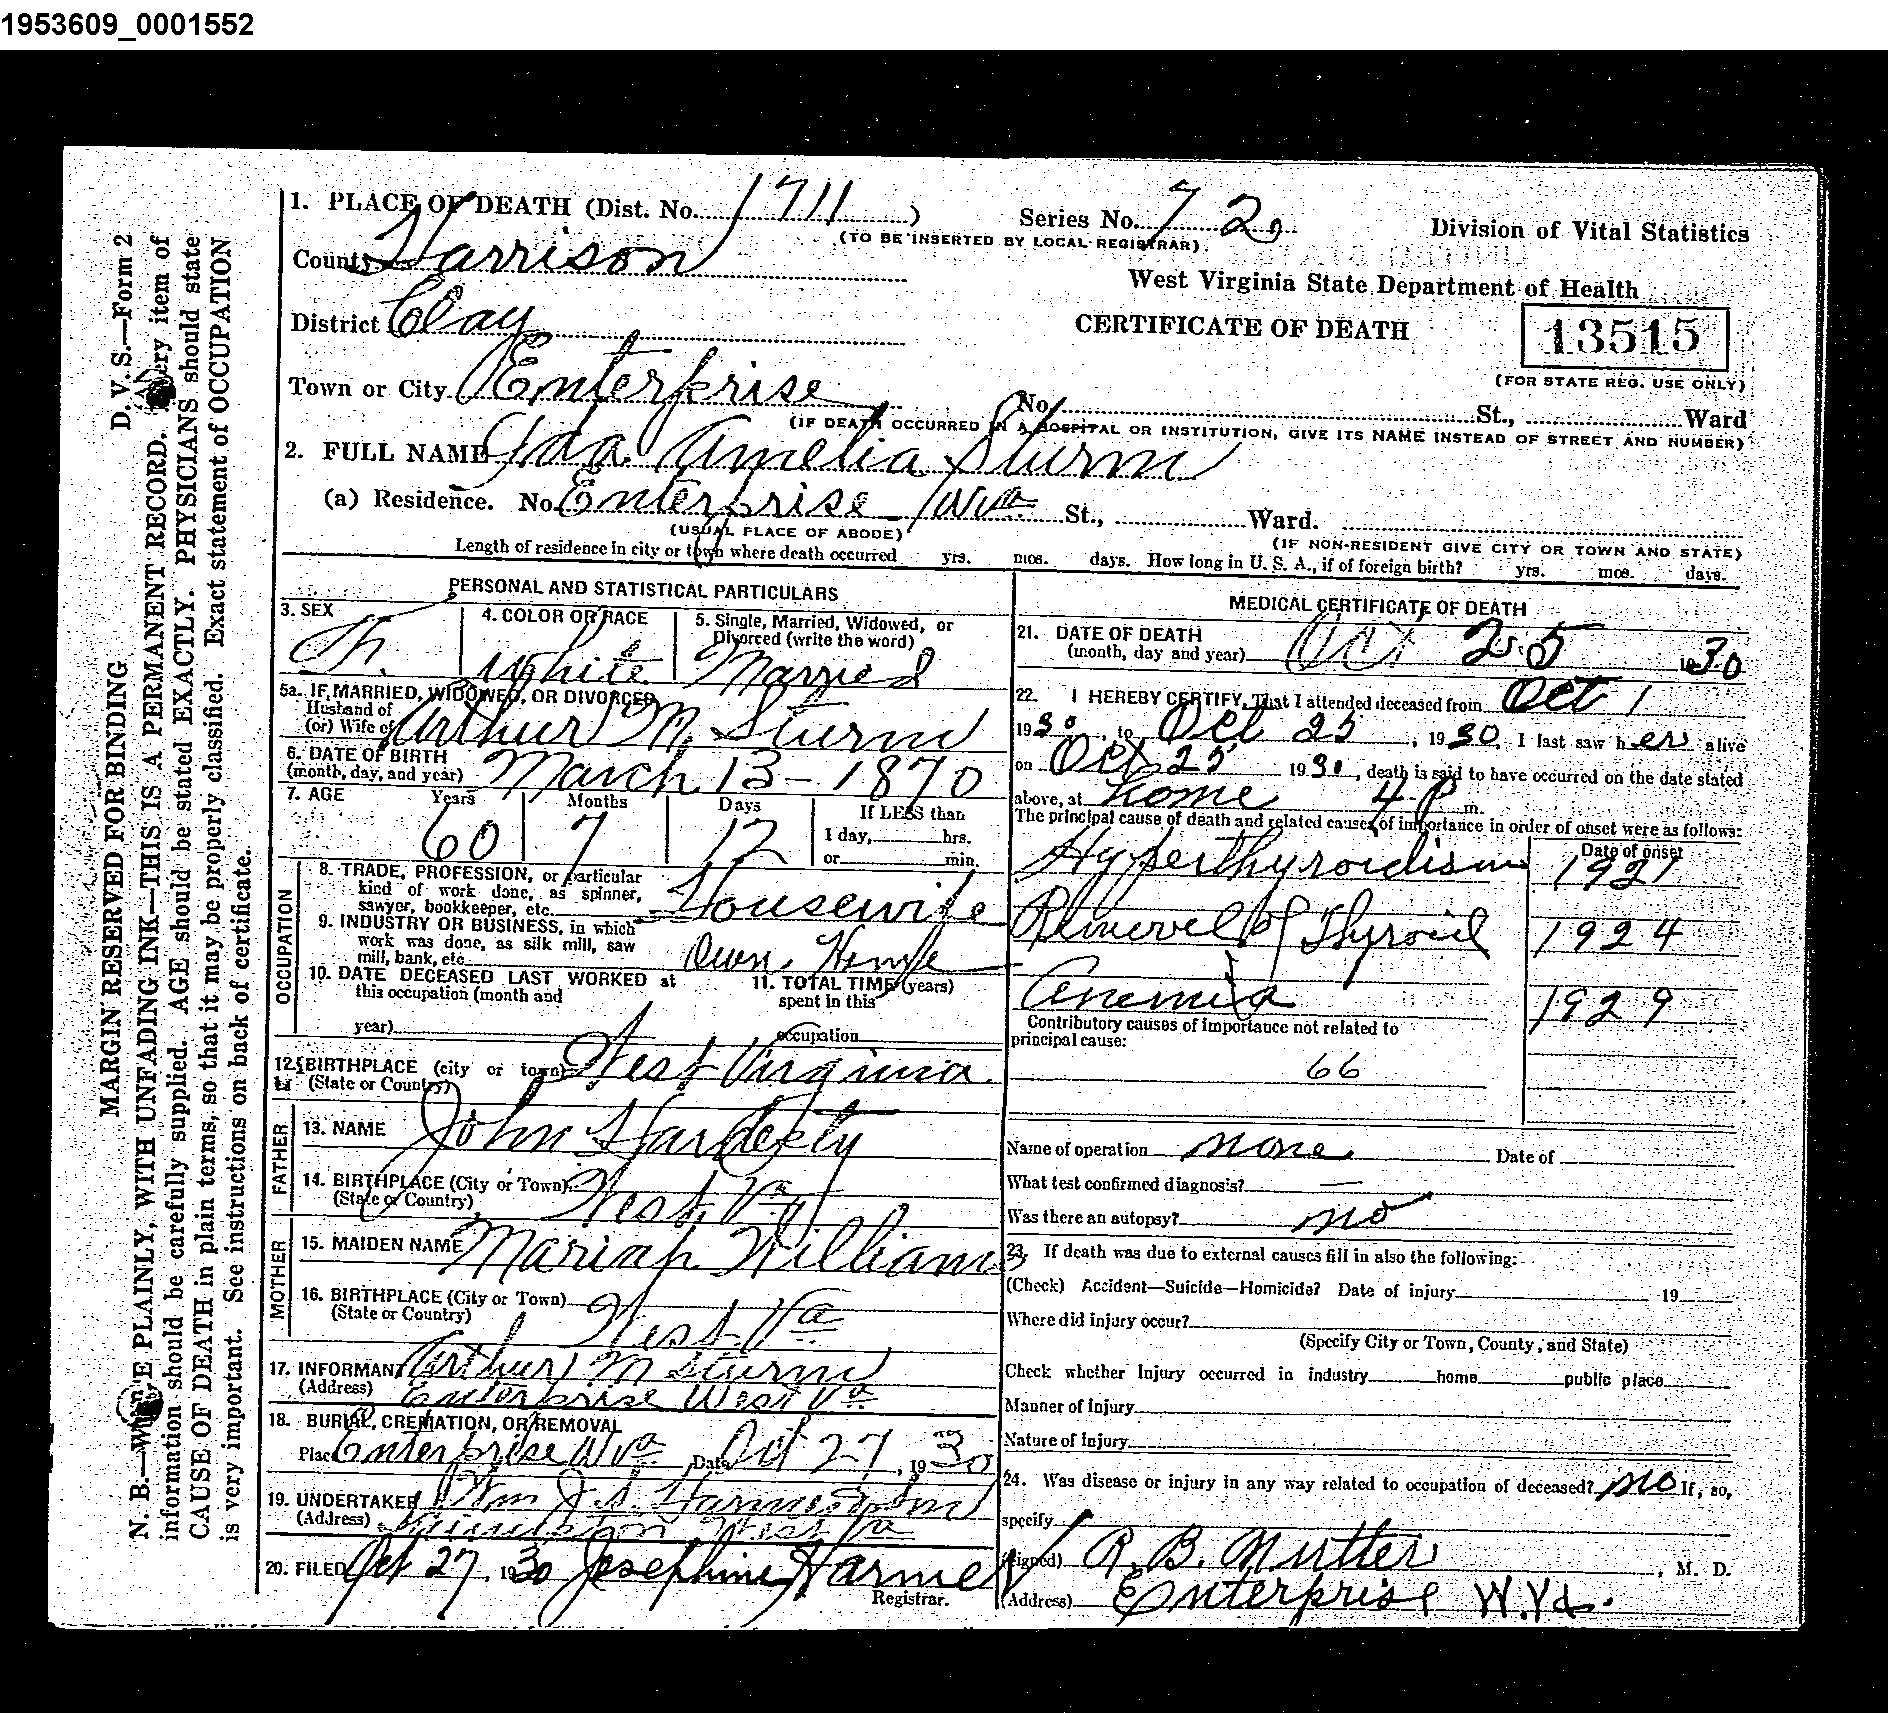 1953609_0001552
D. V. S.—Form 2
MARGIN RESERVED FOR BINDING
N. B.—WRITE PLAINLY, WITH UNFADING INK—THIS IS A PERMANENT RECORD. Every item of
information should be carefully supplied. AGE should be stated EXACTLY. PHYSICIANS should state
CAUSE OF DEATH in plain terms, so that it may be properly classified. Exact statement of OCCUPATION
is very important. See instructions on back of certificate.
1. PLACE OF DEATH (Dist. No. 1711 ) Series No. 72
(TO BE INSERTED BY LOCAL REGISTRAR)
Division of Vital Statistics
County Harrison
West Virginia State Department of Health
District Clay
CERTIFICATE OF DEATH
13515
(FOR STATE REG. USE ONLY)
Town or City Enterprise No. St., Ward
(IF DEATH OCCURRED IN A HOSPITAL OR INSTITUTION, GIVE ITS NAME INSTEAD OF STREET AND NUMBER)
2. FULL NAME Ida Amelia Sturm
(a) Residence. No. Enterprise Wva St., Ward.
(USUAL PLACE OF ABODE) (IF NON-RESIDENT GIVE CITY OR TOWN AND STATE)
Length of residence in city or town where death occurred yrs. mos. days. How long in U. S. A., if of foreign birth? yrs. mos. days.
PERSONAL AND STATISTICAL PARTICULARS
3. SEX
4. COLOR OR RACE
5. Single, Married, Widowed, or
Divorced (write the word)
White Married
5a. IF MARRIED, WIDOWED, OR DIVORCED
Husband of
(or) Wife of Arthur M. Sturm
6. DATE OF BIRTH
(month, day, and year) March 13 - 1870
7. AGE Years Months Days If LESS than
60 7 12 1 day, hrs.
or min.
OCCUPATION
8. TRADE, PROFESSION, or particular
kind of work done, as spinner,
sawyer, bookkeeper, etc. Housewife
9. INDUSTRY OR BUSINESS, in which
work was done, as silk mill, saw
mill, bank, etc. Own Home
10. DATE DECEASED LAST WORKED at
this occupation (month and
year)
11. TOTAL TIME (years)
spent in this
occupation
12. BIRTHPLACE (city or town) West Virginia
(State or Country)
FATHER
13. NAME John Hardesty
14. BIRTHPLACE (City or Town) West Va
(State or Country)
MOTHER
15. MAIDEN NAME Mariah Williams
16. BIRTHPLACE (City or Town)
(State or Country) West Va
17. INFORMANT Arthur M Sturm
(Address) Enterprise West Va
18. BURIAL, CREMATION, OR REMOVAL
Place Enterprise Wva Date Oct 27, 1930
19. UNDERTAKER Wm J. S. Harmer
(Address) West Va
20. FILED Oct 27, 1930 Josephine Harmer
Registrar.
MEDICAL CERTIFICATE OF DEATH
21. DATE OF DEATH
(month, day and year) Oct 25 1930
22. I HEREBY CERTIFY, That I attended deceased from Oct 1
1930, to Oct 25, 1930, I last saw her alive
on Oct 25 1930, death is said to have occurred on the date stated
above, at home 4 P m.
The principal cause of death and related causes of importance in order of onset were as follows:
Date of onset
Hyperthyroidism 1921
Removel of Thyroid 1924
Anemia 1929
Contributory causes of importance not related to
principal cause:
66
Name of operation none Date of
What test confirmed diagnosis? —
Was there an autopsy? no
23. If death was due to external causes fill in also the following:
(Check) Accident—Suicide—Homicide? Date of injury 19
Where did injury occur?
(Specify City or Town, County, and State)
Check whether Injury occurred in industry home public place
Manner of Injury
Nature of Injury
24. Was disease or injury in any way related to occupation of deceased? no If, so,
specify
(Signed) R. B. Nutter, M. D.
(Address) Enterprise W.Va.